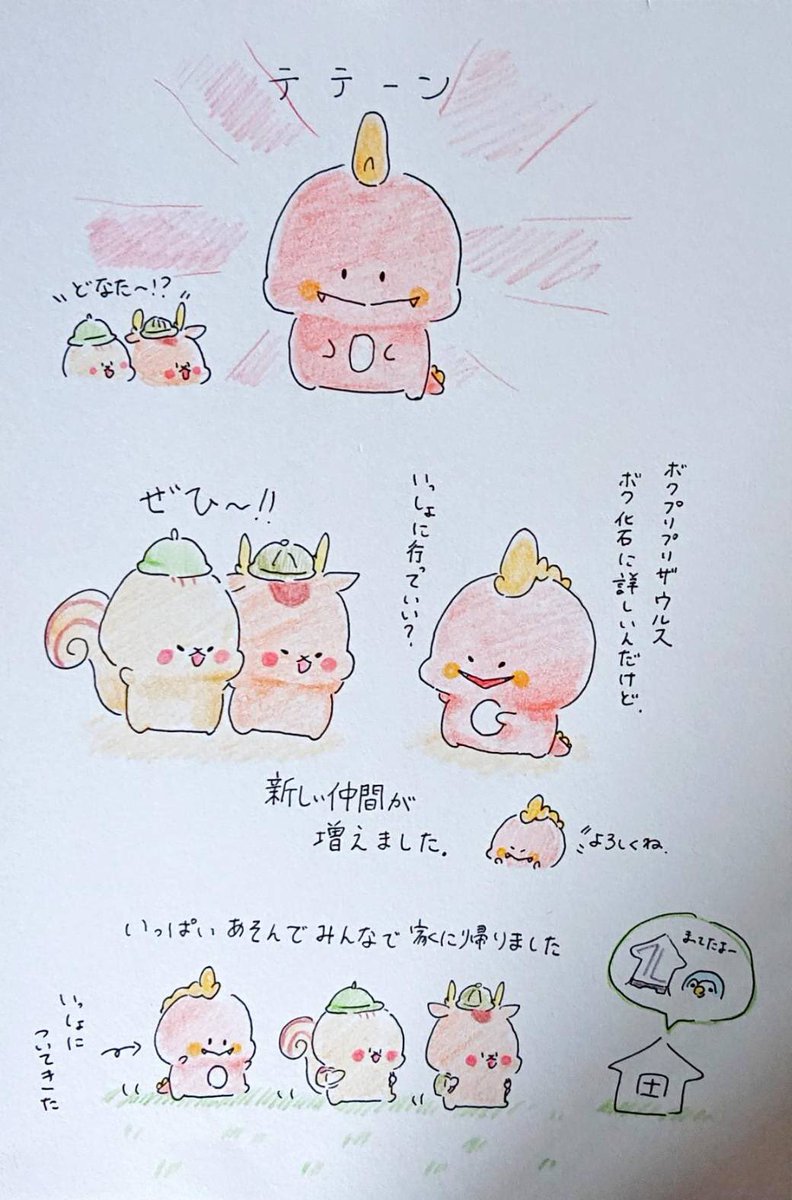 テテーン
どなた〜!?
ボクプリプリザウルス
ボク化石に詳しいんだけど、
いっしょに行っていい?
ぜひ〜!!
新しい仲間が
増えました。
よろしくね。
いっぱいあそんでみんなで家に帰りました
いっしょに
ついてきた
まってたよー